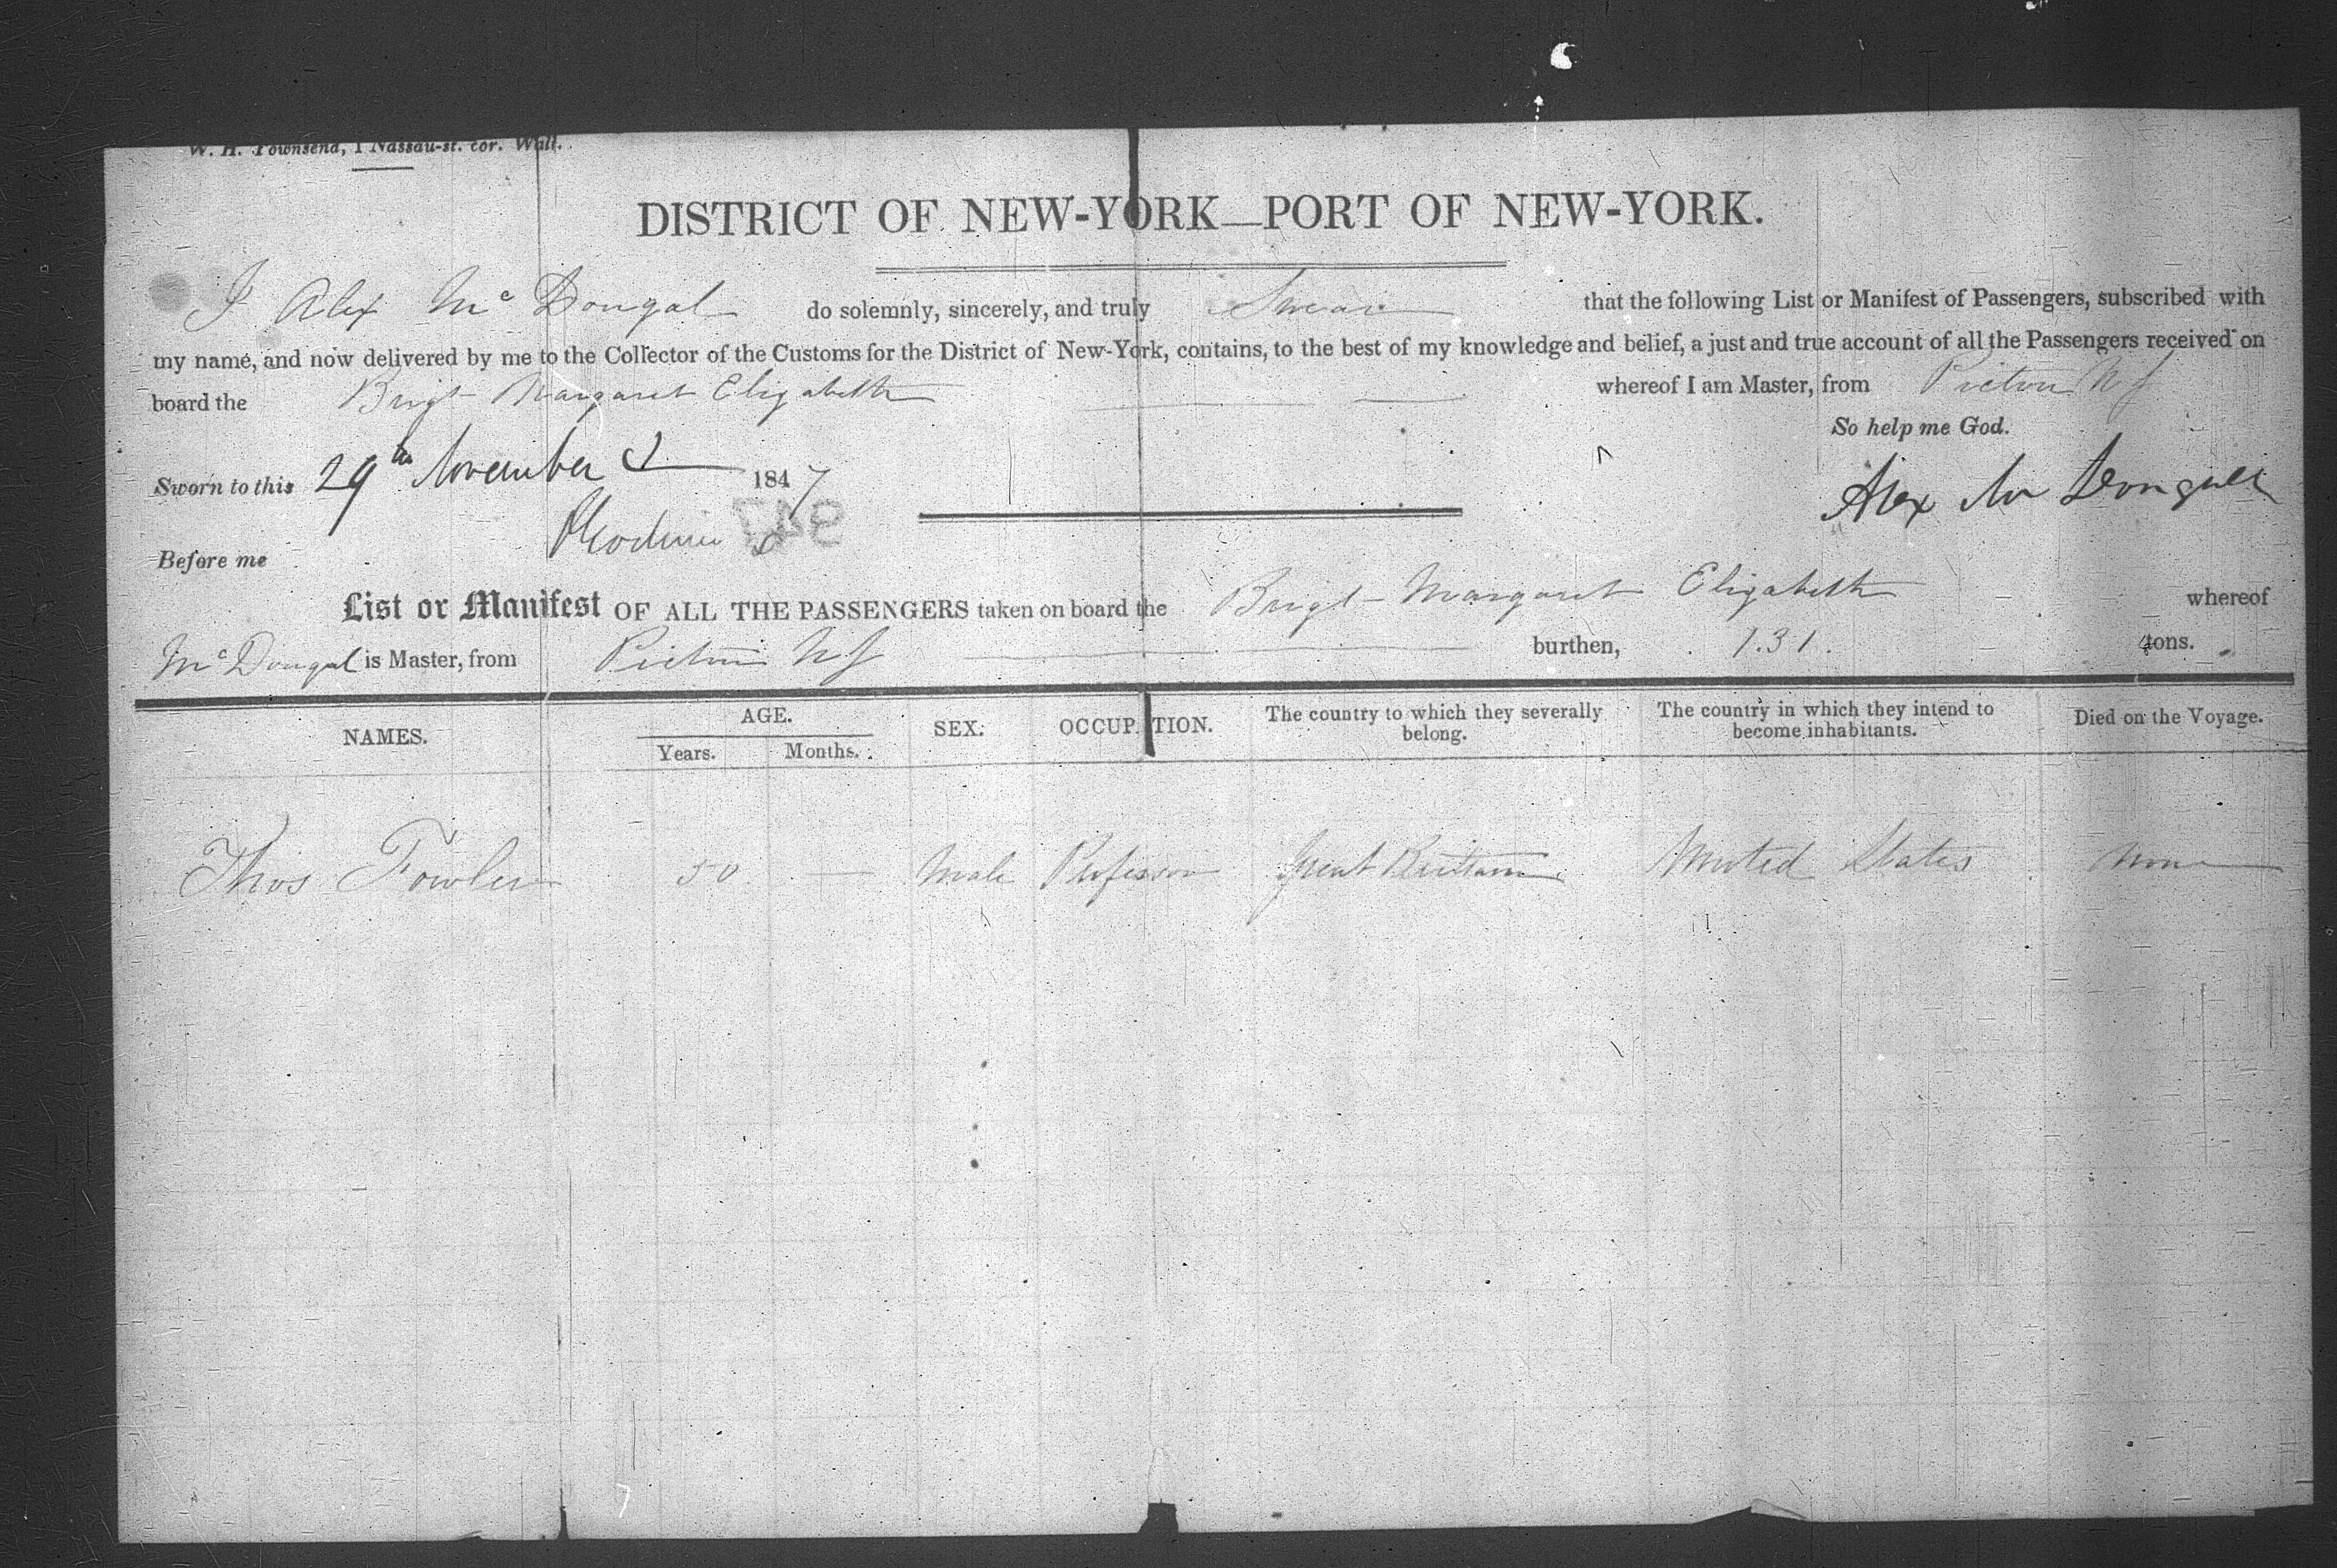 W. H. Townsend, 1 Nassau-st. cor. Wall.
DISTRICT OF NEW-YORK—PORT OF NEW-YORK.
I Alex Mc Dougal do solemnly, sincerely, and truly Swear that the following List or Manifest of Passengers, subscribed with
my name, and now delivered by me to the Collector of the Customs for the District of New-York, contains, to the best of my knowledge and belief, a just and true account of all the Passengers received on
board the Brigt Margaret Elizabeth whereof I am Master, from Pictou NS
So help me God.
Sworn to this 29th November 1847
Alex Mc Dougall
Before me
List or Manifest OF ALL THE PASSENGERS taken on board the Brigt Margaret Elizabeth whereof
McDougal is Master, from Pictou NS burthen, 131. tons.
NAMES. AGE. SEX. OCCUPATION. The country to which they severally belong. The country in which they intend to become inhabitants. Died on the Voyage.
Years. Months.
Thos Fowler 50 — Male Professor Great Britain United States None